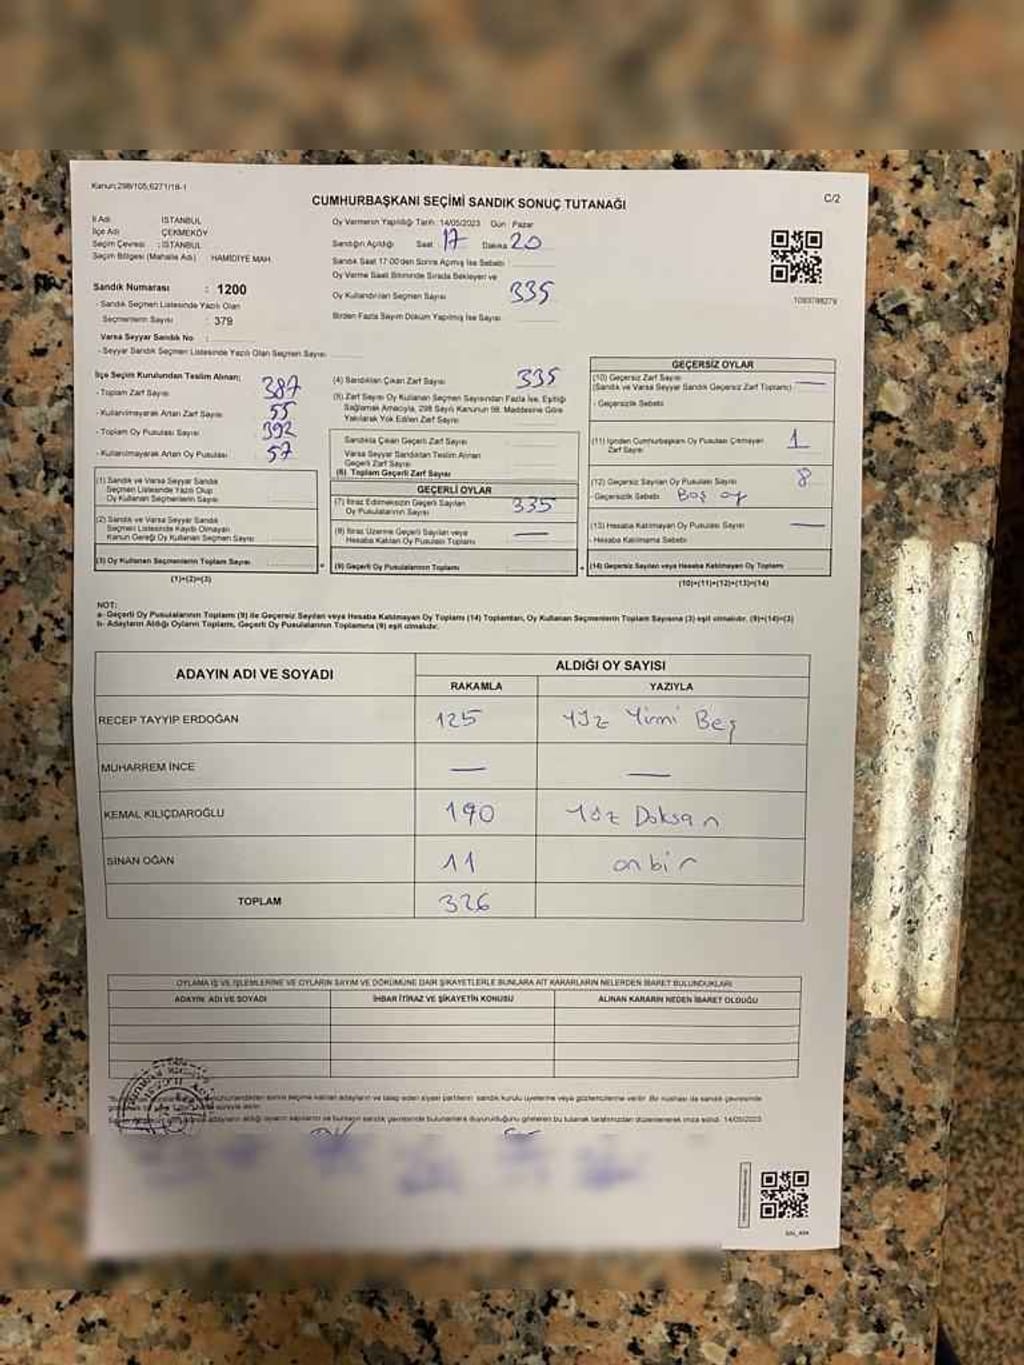 Kanun:298/105,6271/18-1
CUMHURBAŞKANI SEÇİMİ SANDIK SONUÇ TUTANAĞI
C/2
İl Adı : İSTANBUL
İlçe Adı : ÇEKMEKÖY
Seçim Çevresi : İSTANBUL
Seçim Bölgesi (Mahalle Adı) HAMİDİYE MAH.
Oy Vermenin Yapıldığı Tarih: 14/05/2023 Gün : Pazar
Sandığın Açıldığı Saat 17 Dakika 20
Sandık Saat 17:00'den Sonra Açılmış İse Sebebi
Oy Verme Saati Bitiminde Sırada Bekleyen ve
Oy Kullandırılan Seçmen Sayısı 335
Birden Fazla Sayım Döküm Yapılmış İse Sayısı
1093788279
Sandık Numarası : 1200
- Sandık Seçmen Listesinde Yazılı Olan
Seçmenlerin Sayısı : 379
Varsa Seyyar Sandık No :
- Seyyar Sandık Seçmen Listesinde Yazılı Olan Seçmen Sayısı
İlçe Seçim Kurulundan Teslim Alınan:
- Toplam Zarf Sayısı 387
- Kullanılmayarak Artan Zarf Sayısı 55
- Toplam Oy Pusulası Sayısı 392
- Kullanılmayarak Artan Oy Pusulası 57
(1) Sandık ve Varsa Seyyar Sandık
Seçmen Listesinde Yazılı Olup
Oy Kullanan Seçmenlerin Sayısı
(2) Sandık ve Varsa Seyyar Sandık
Seçmen Listesinde Kayıtlı Olmayan
Kanun Gereği Oy Kullanan Seçmen Sayısı
(3) Oy Kullanan Seçmenlerin Toplam Sayısı
(1)+(2)=(3)
(4) Sandıktan Çıkan Zarf Sayısı 335
(5) Zarf Sayısı Oy Kullanan Seçmen Sayısından Fazla İse, Eşitliği
Sağlamak Amacıyla, 298 Sayılı Kanunun 98. Maddesine Göre
Yakılarak Yok Edilen Zarf Sayısı
Sandıkta Çıkan Geçerli Zarf Sayısı
Varsa Seyyar Sandıktan Teslim Alınan
Geçerli Zarf Sayısı
(6) Toplam Geçerli Zarf Sayısı
GEÇERLİ OYLAR
(7) İtiraz Edilmeksizin Geçerli Sayılan
Oy Pusulalarının Sayısı 335
(8) İtiraz Üzerine Geçerli Sayılan veya
Hesaba Katılan Oy Pusulası Toplamı —
(9) Geçerli Oy Pusulalarının Toplamı
GEÇERSİZ OYLAR
(10) Geçersiz Zarf Sayısı
(Sandık ve Varsa Seyyar Sandık Geçersiz Zarf Toplamı) —
- Geçersizlik Sebebi
(11) İçinden Cumhurbaşkanı Oy Pusulası Çıkmayan
Zarf Sayısı 1
(12) Geçersiz Sayılan Oy Pusulası Sayısı 8
- Geçersizlik Sebebi Boş oy
(13) Hesaba Katılmayan Oy Pusulası Sayısı —
- Hesaba Katılmama Sebebi
(14) Geçersiz Sayılan veya Hesaba Katılmayan Oy Toplamı
(10)+(11)+(12)+(13)=(14)
NOT:
a- Geçerli Oy Pusulalarının Toplamı (9) ile Geçersiz Sayılan veya Hesaba Katılmayan Oy Toplamı (14) Toplamları, Oy Kullanan Seçmenlerin Toplam Sayısına (3) eşit olmalıdır. (9)+(14)=(3)
b- Adayların Aldığı Oyların Toplamı, Geçerli Oy Pusulalarının Toplamına (9) eşit olmalıdır.
ADAYIN ADI VE SOYADI
ALDIĞI OY SAYISI
RAKAMLA YAZIYLA
RECEP TAYYİP ERDOĞAN 125 Yüz Yirmi Beş
MUHARREM İNCE — —
KEMAL KILIÇDAROĞLU 190 Yüz Doksan
SİNAN OĞAN 11 onbir
TOPLAM 326
OYLAMA İŞ VE İŞLEMLERİNE VE OYLARIN SAYIM VE DÖKÜMÜNE DAİR ŞİKAYETLERLE BUNLARA AİT KARARLARIN NELERDEN İBARET BULUNDUKLARI
ADAYIN ADI VE SOYADI İHBAR İTİRAZ VE ŞİKAYETİN KONUSU ALINAN KARARIN NEDEN İBARET OLDUĞU
seçime katılan adayların ve talep eden siyasi partilerin sandık kurulu üyelerine veya gözlemcilerine verilir. Bir nüshası da sandık çevresinde
adayların aldığı oyların sayılarını ve bunların sandık çevresinde bulunanlara duyurulduğunu gösteren bu tutanak tarafımızdan düzenlenerek imza edildi. 14/05/2023